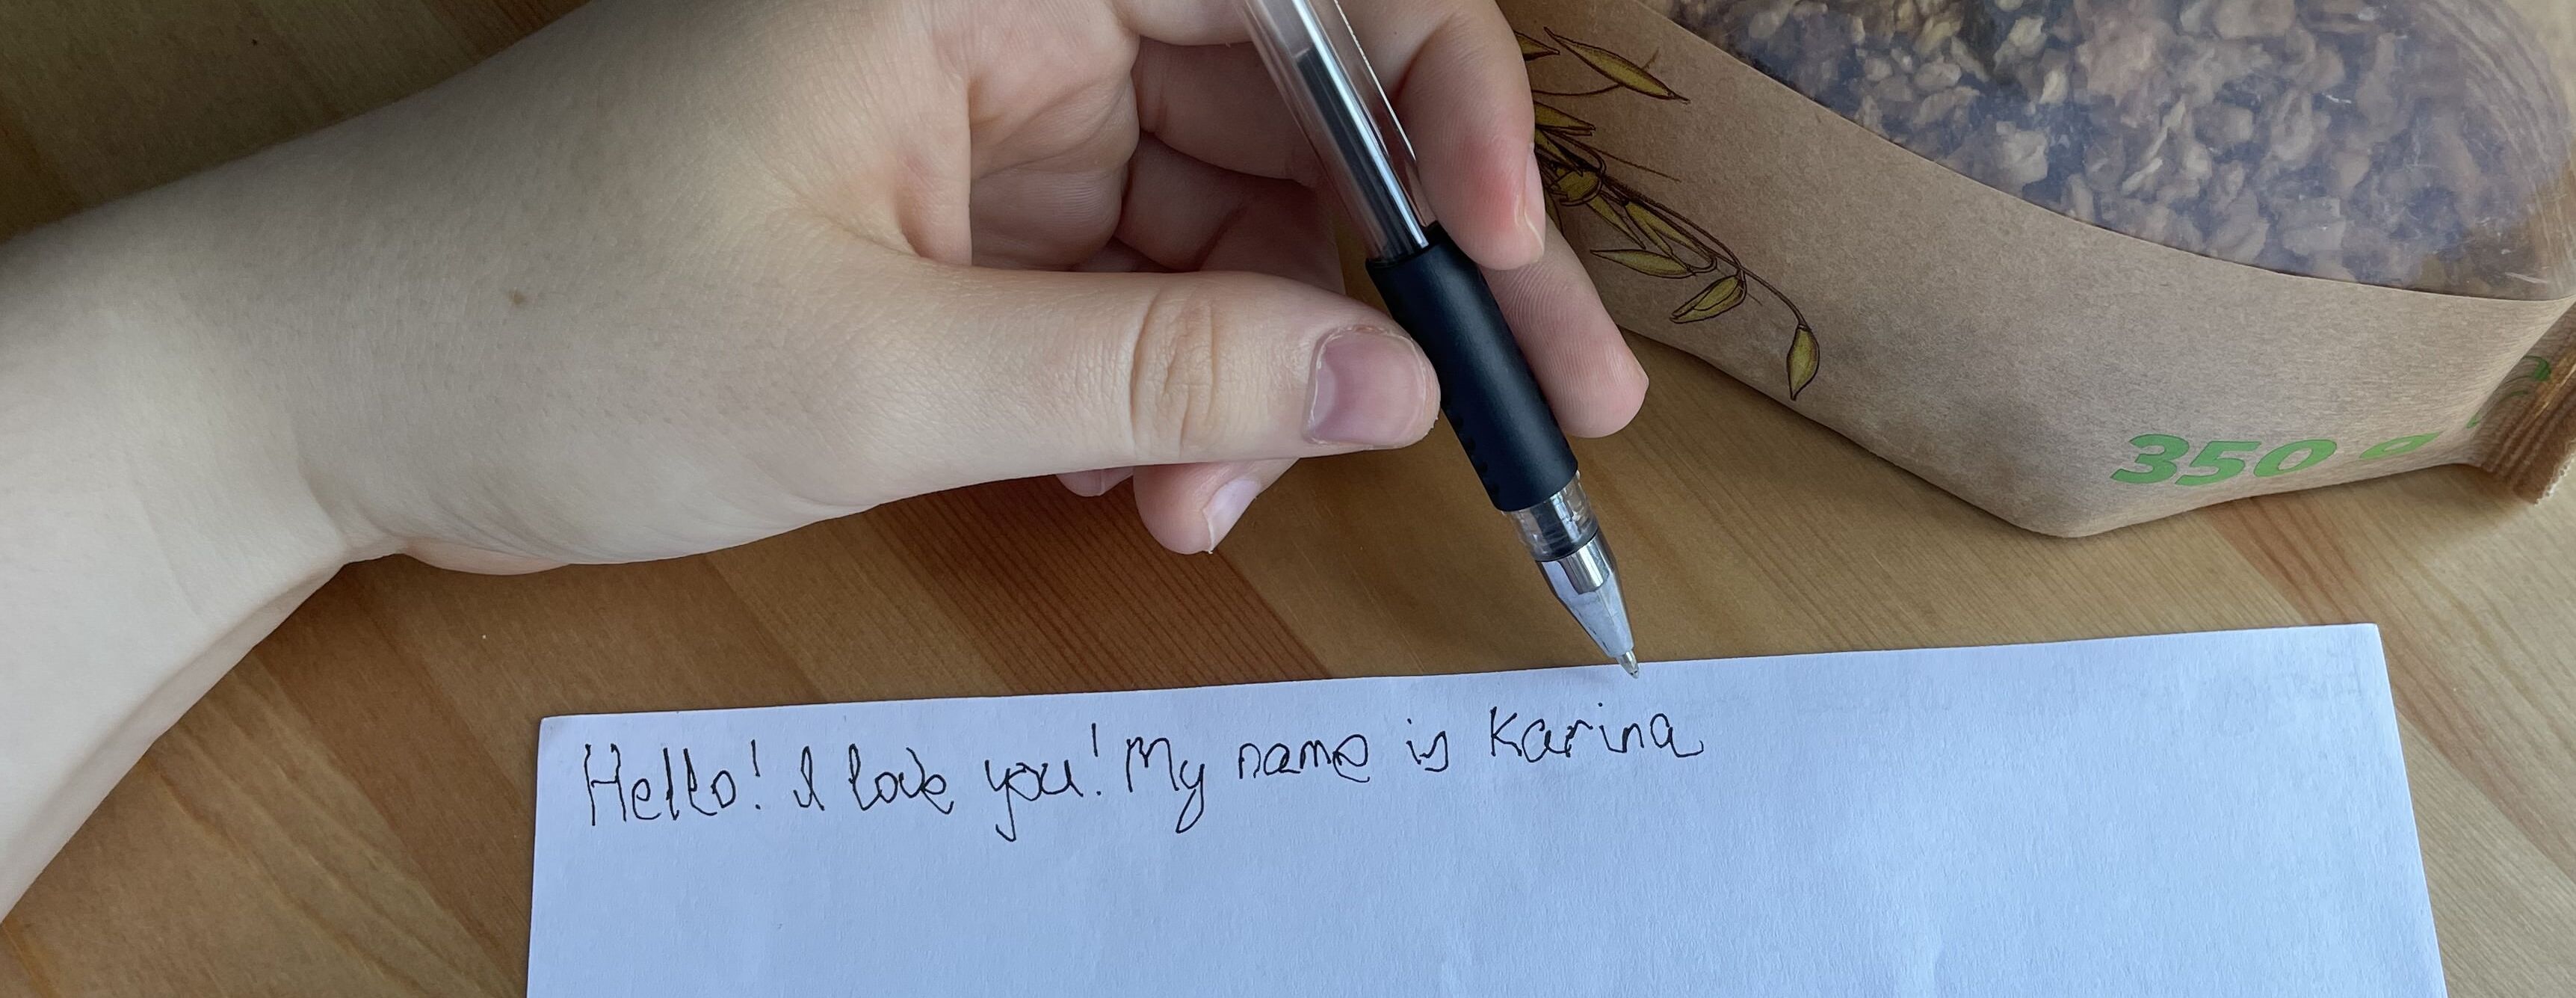 350 g
Hello! I love you! My name is Karina